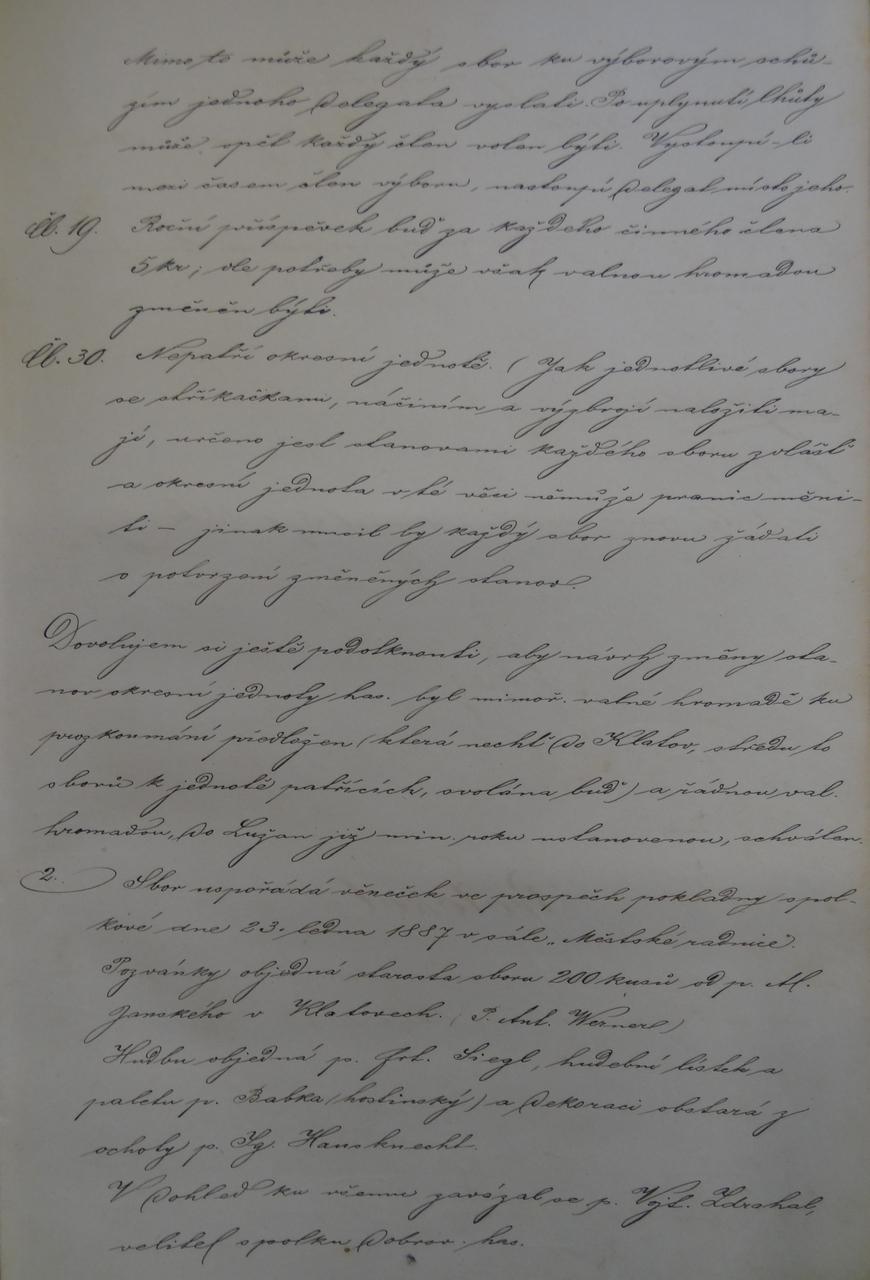 Mimo to může každý sbor ku výborovým schů-
zím jednoho delegata vyslati. Po uplynutí lhůty
může opět každý člen volen býti. Vystoupí-li
mezi časem člen výboru, nastoupí delegat místo jeho.
Čl. 19. Roční příspěvek buď za každého činného člena
5 kr; dle potřeby může však valnou hromadou
změněn býti.
Čl. 30. Nepatří okresní jednotě. (Jak jednotlivé sbory
se stříkačkami, náčiním a výzbrojí naložiti ma-
jí, určeno jest stanovami každého sboru zvlášť
a okresní jednota v té věci nemůže pranic měni-
ti – jinak musil by každý sbor znovu žádati
o potvrzení změněných stanov.
Dovolujem si ještě podotknouti, aby návrh změny sta-
nov okresní jednoty has. byl mimoř. valné hromadě ku
prozkoumání předložen (která nechť do Klatov, středu to
sborů k jednotě patřících, svolána buď) a řádnou val.
hromadou, do Lužan již min. roku ustanovenou, schválen.
2. Sbor uspořádá věneček ve prospěch pokladny spol-
kové dne 23. ledna 1887 v sále „Městské radnice.
Pozvánky objedná starosta sboru 200 kusů od p. M.
Janského v Klatovech. (P. Ant. Werner)
Hudbu objedná p. Frt. Siegl, hudební lístek a
paletu p. Babka (hostinský) a dekoraci obstará z
ochoty p. Ig. Hausknecht.
V dohled ku všemu zavázal se p. Vojt. Zdrahal,
velitel spolku dobrov. has.